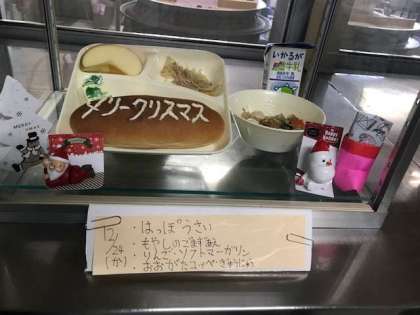 いかるが
牛乳
メリークリスマス
MERRY
12/24(か)
・はっぽうさい
・もやしのごまずあえ
・りんご・ソフトマーガリン
・おおがたコッペ・ぎゅうにゅう